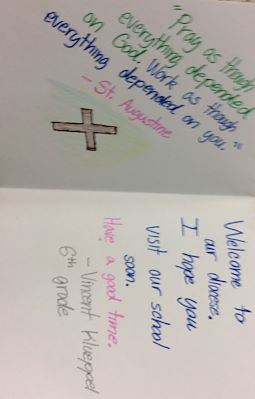 "Pray as though
everything depended
on God. Work as though
everything depended on you."
- St. Augustine
Welcome to
our diocese.
I hope you
visit our school
soon.
Have a good time.
- Vincent Klueppel
6th grade